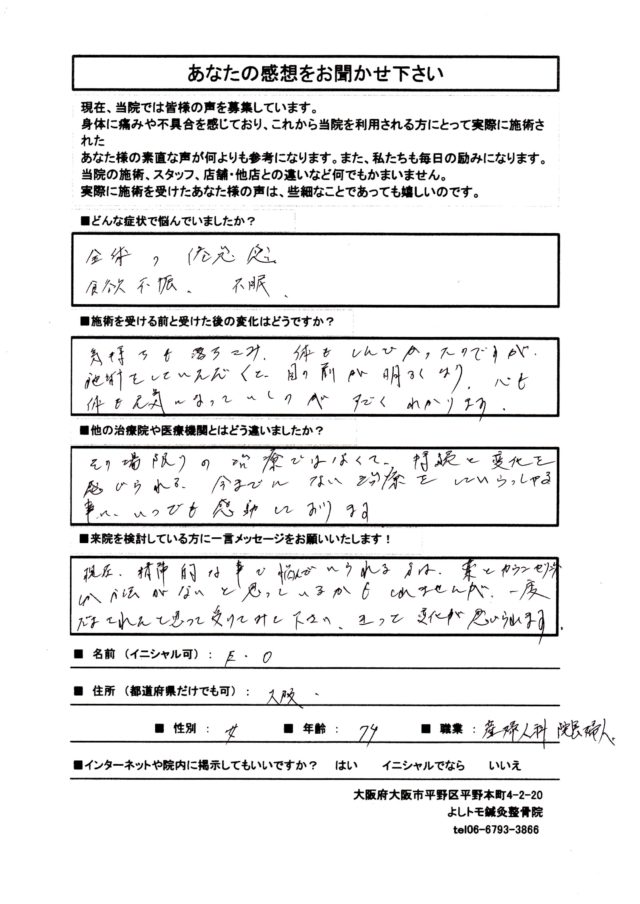 あなたの感想をお聞かせ下さい
現在、当院では皆様の声を募集しています。
身体に痛みや不具合を感じており、これから当院を利用される方にとって実際に施術さ
れた
あなた様の素直な声が何よりも参考になります。また、私たちも毎日の励みになります。
当院の施術、スタッフ、店舗・他店との違いなど何でもかまいません。
実際に施術を受けたあなた様の声は、些細なことであっても嬉しいのです。
■どんな症状で悩んでいましたか？
全術の倦怠感
食欲不振、不眠、
■施術を受ける前と受けた後の変化はどうですか？
気持ちも落ちこみ、体もしんどかったのですが、
施術をしていただくと、目の前が明るくなり、心も
体も元気になっていくのがすごくわかります。
■他の治療院や医療機関とはどう違いましたか？
その場限りの治療ではなくて、持続と変化を
感じられる、今までにない治療をしていらっしゃる
事に、いつも感動しております
■来院を検討している方に一言メッセージをお願いいたします！
現在、精神的な事で悩んでいられる方は、薬とカウンセリング
しか方法がないと思っているかもしれませんが、一度
だまされたと思って受けてみて下さい、きっと変化が感じられます。
■ 名前（イニシャル可）： E・O
■ 住所（都道府県だけでも可）： 大阪
■ 性別： 女 ■ 年齢： 74 ■ 職業： 産婦人科 院長婦人
■インターネットや院内に掲示してもいいですか？ はい イニシャルでなら いいえ
大阪府大阪市平野区平野本町4-2-20
よしトモ鍼灸整骨院
tel06-6793-3866